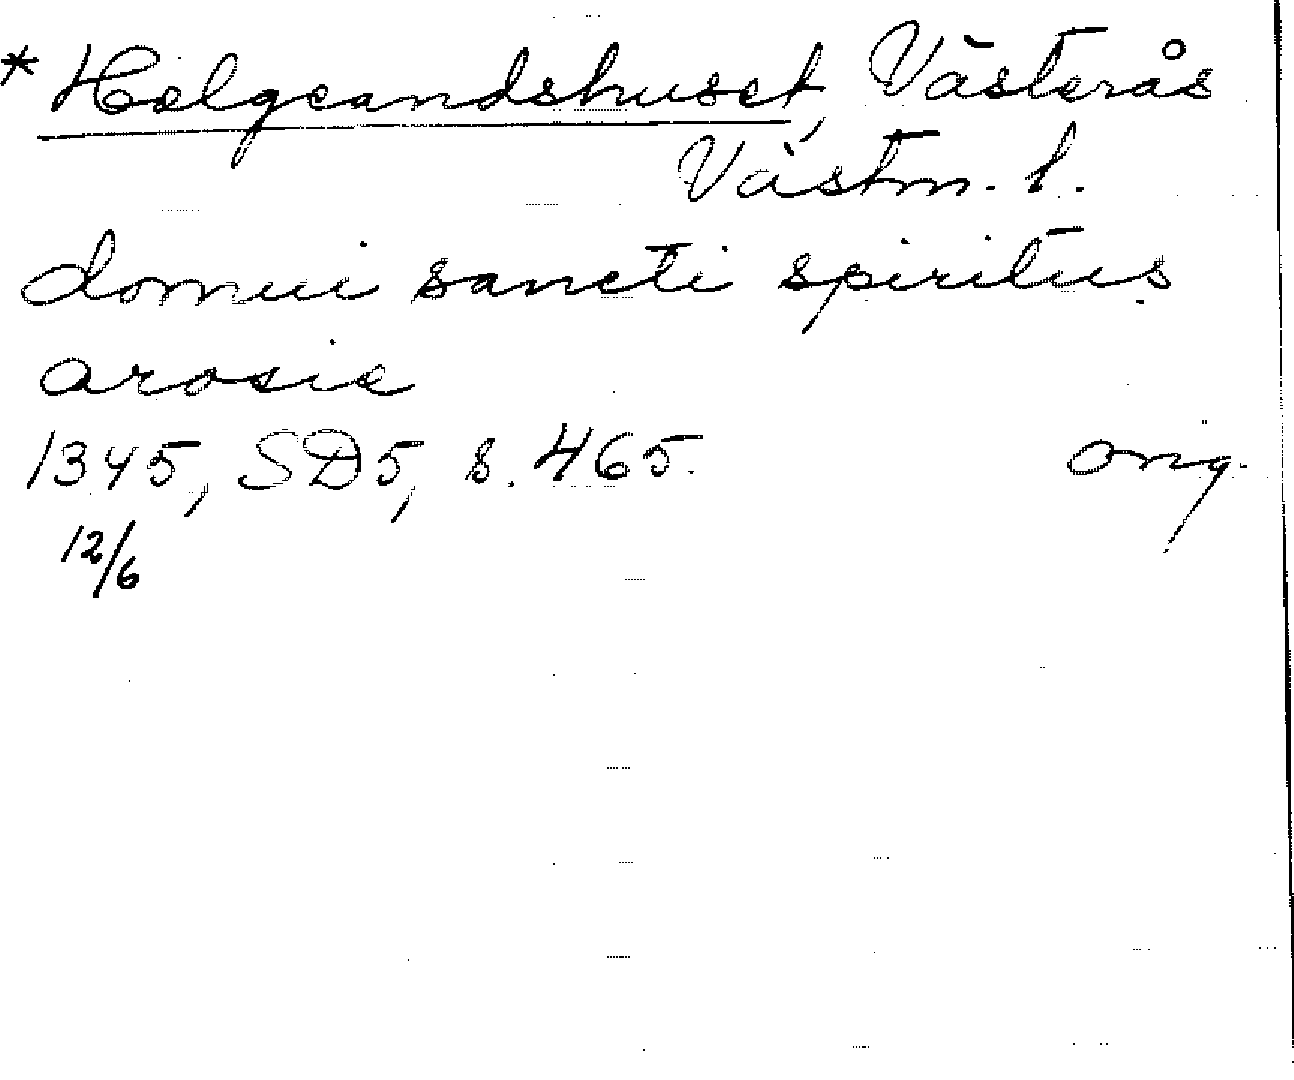 * Helgeandshuset, Västerås
Västm. l.
domui sancti spiritus
arosie
1345, SD5, s. 465. orig.
12/6